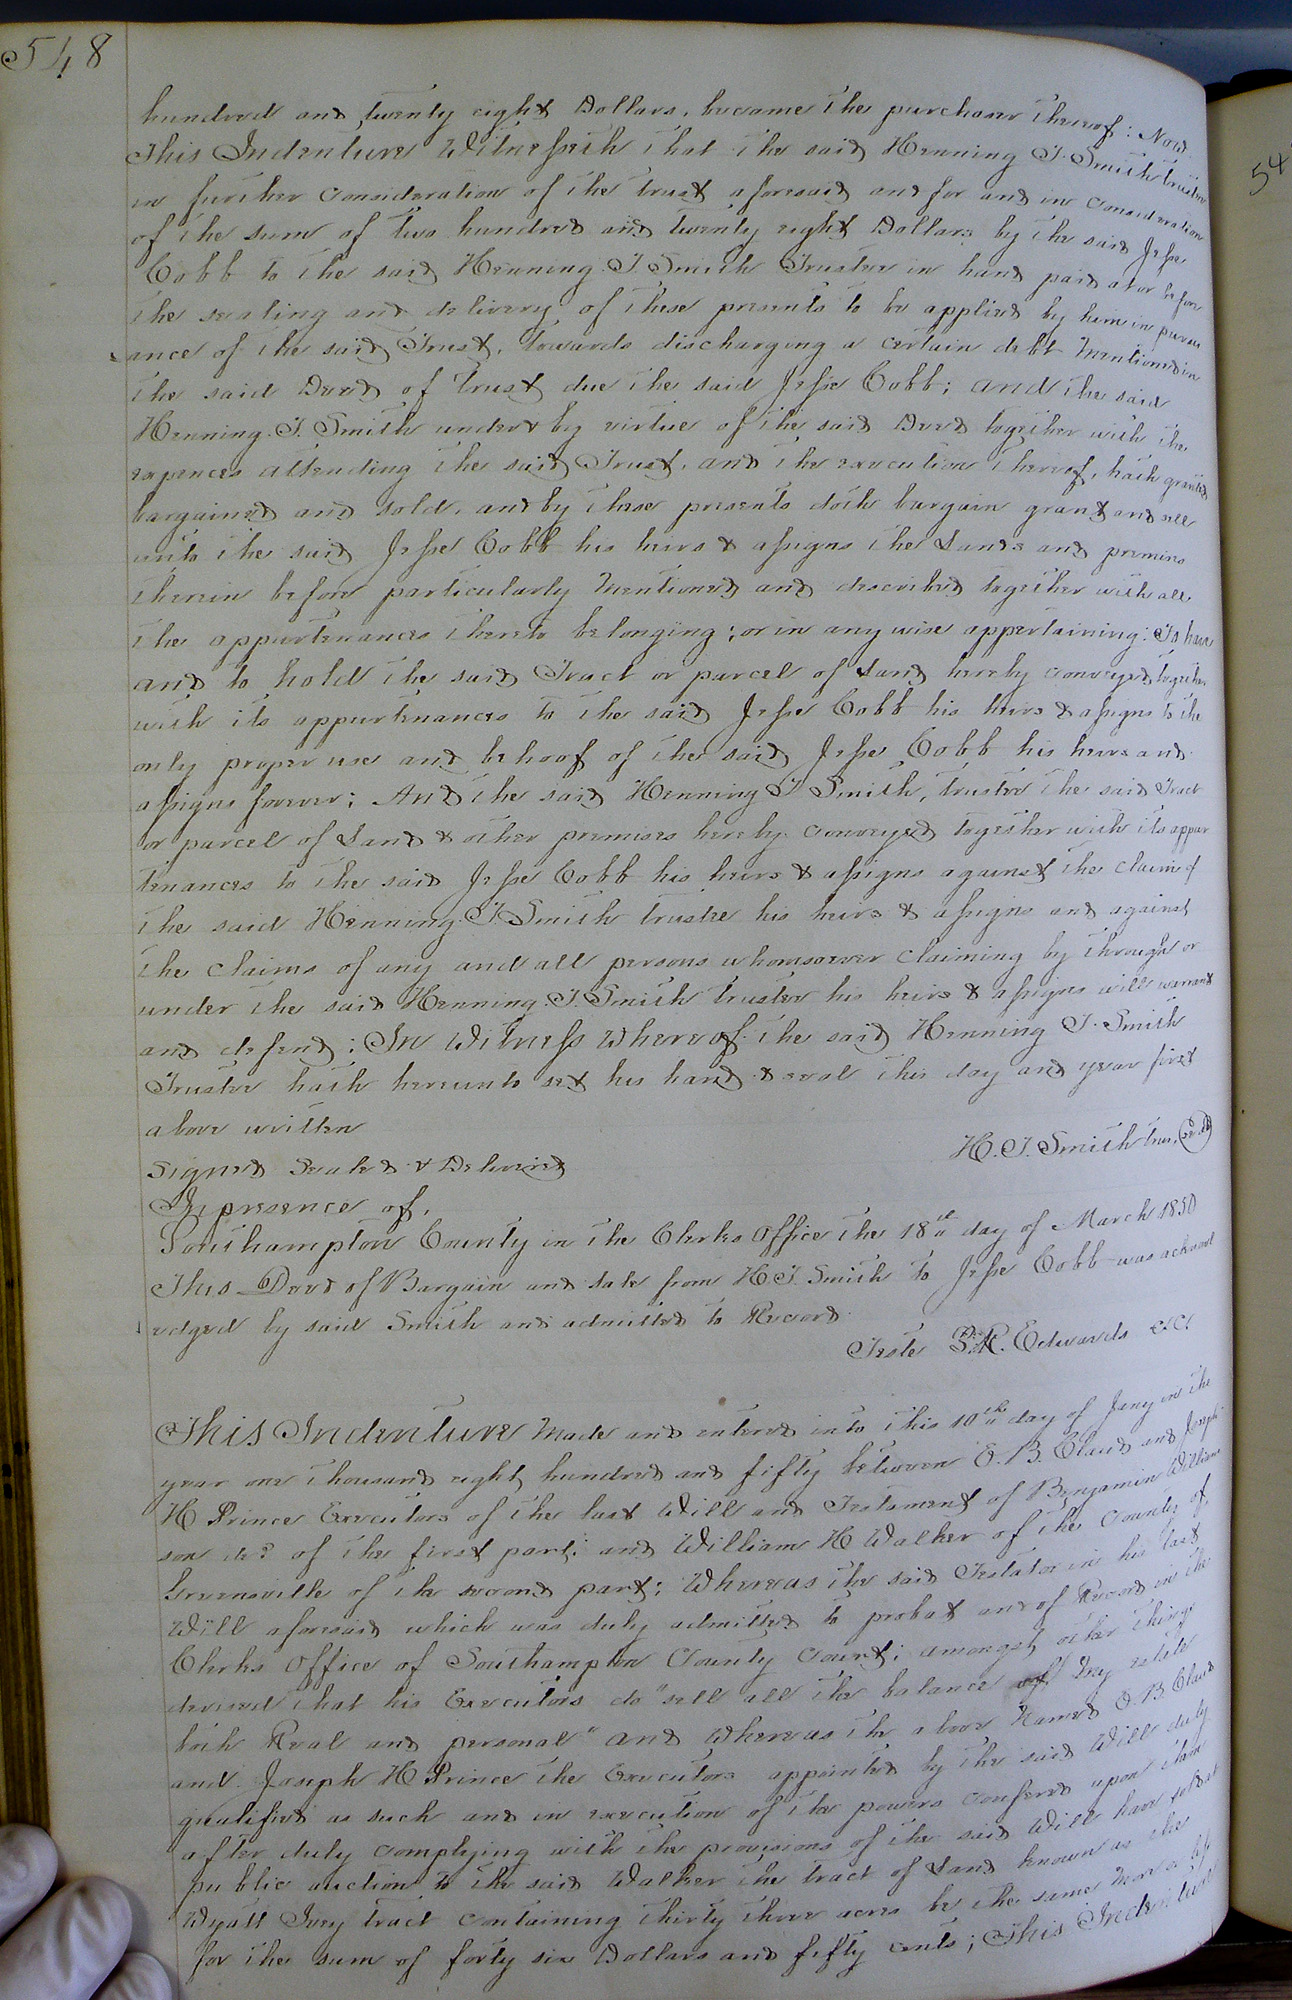 548
hundred and twenty eight Dollars, became the purchaser thereof: Now
This Indenture Witnesseth that the said Henning T. Smith trustee
in further consideration of the trust aforesaid and for and in consideration
of the sum of two hundred and twenty eight Dollars by the said Jesse
Cobb to the said Henning T. Smith Trustee in hand paid at or before
the sealing and delivery of these presents to be applied by him in pursu
ance of the said Trust, towards discharging a certain debt mentioned in
the said Deed of Trust due the said Jesse Cobb; and the said
Henning T. Smith under & by virtue of the said Deed together with the
expences attending the said Trust, and the execution thereof, hath granted
bargained and sold, and by these presents doth bargain grant and sell
unto the said Jesse Cobb his heirs & assigns the Lands and premises
therein before particularly mentioned and described together with all
the appurtenances thereto belonging; or in any wise appertaining: To have
and to hold the said Tract or parcel of Land hereby conveyed together
with its appurtenances to the said Jesse Cobb his heirs & assigns to the
only proper use and behoof of the said Jesse Cobb his heirs and
assigns forever; And the said Henning T Smith, trustee the said Tract
or parcel of Land & other premises hereby conveyed together with its appur
tenances to the said Jesse Cobb his heirs & assigns against the claim of
the said Henning T. Smith trustee his heirs & assigns and against
the claims of any and all persons whomsoever claiming by through or
under the said Henning T. Smith trustee his heirs & assigns will warrant
and defend: In Witness Whereof the said Henning T. Smith
Trustee hath hereunto set his hand & seal this day and year first
above written
H. T. Smith Trus. Seal
Signed Sealed & Delivered
In presence of,
Southampton County in the Clerks Office the 18th day of March 1850
This Deed of Bargain and sale from H T. Smith to Jesse Cobb was acknowl
edged by said Smith and admitted to Record
Teste Edwards C.C.
This Indenture Made and entered into this 10th day of Jany in the
year one thousand eight hundred and fifty between E. B. Claud and Joseph
H Prince Executors of the last Will and Testament of Benjamin William
son decd of the first part; and William H Walker of the County of
Greensville of the second part; Whereas the said Testator in his last
Will aforesaid which was duly admitted to probat and of Record in the
Clerks Office of Southampton County Court; amongst other things
devised that his Executors do "sell all the balance of my estate
both Real and personal" and Whereas the above Named E. B. Claud
and Joseph H Prince the Executors appointed by the said Will duly
qualified as such and in execution of the powers confered upon them
after duly complying with the provisions of the said Will have sold at
public auction to the said Walker the tract of Land known as the
Wyatt Ivey tract containing thirty three acres be the same more or less
for the sum of forty six Dollars and fifty cents; This Indenture